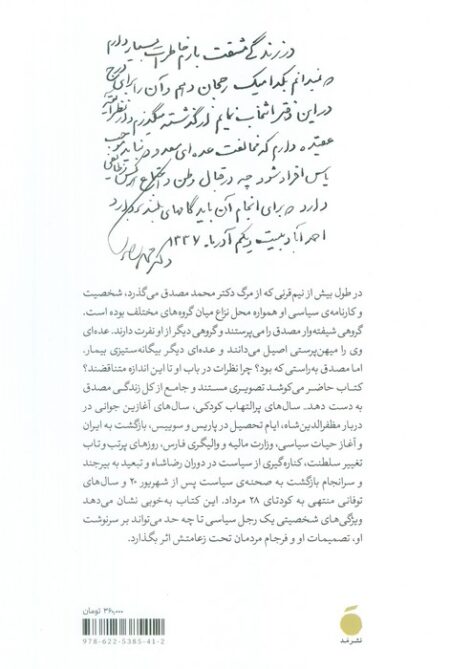 در زندگی مشقت بارم خاطرات بسیار دارم
و نمیدانم بکدامیک رجحان دهم و آن را برای درج
در این دفتر انتخاب نمایم از گذشته میگذرم و از نظر آتیه
عقیده دارم که مخالفت عده‌ای معدود نباید موجب
یاس افراد شود چه در قبال وطن و اجتماع هر کس وظایفی
دارد و برای انجام آن باید گامهای بلندی بردارد
احمد آباد بیست و یکم آذرماه ۱۳۳۷
دکتر محمد مصدق
در طول بیش از نیم‌قرنی که از مرگ دکتر محمد مصدق می‌گذرد، شخصیت
و کارنامه‌ی سیاسی او همواره محل نزاع میان گروه‌های مختلف بوده است.
گروهی شیفته‌وار مصدق را می‌پرستند و گروهی دیگر از او نفرت دارند. عده‌ای
وی را میهن‌پرستی اصیل می‌دانند و عده‌ای دیگر بیگانه‌ستیزی بیمار.
اما مصدق به‌راستی که بود؟ چرا نظرات در باب او تا این اندازه متناقضند؟
کتاب حاضر می‌کوشد تصویری مستند و جامع از کل زندگی مصدق
به دست دهد_ سال‌های پرالتهاب کودکی، سال‌های آغازین جوانی در
دربار مظفرالدین‌شاه، ایام تحصیل در پاریس و سوییس، بازگشت به ایران
و آغاز حیات سیاسی، وزارت مالیه و والیگری فارس، روزهای پرتب‌و‌تاب
تغییر سلطنت، کناره‌گیری از سیاست در دوران رضاشاه و تبعید به بیرجند
و سرانجام بازگشت به صحنه‌ی سیاست پس از شهریور ۲۰ و سال‌های
توفانی منتهی به کودتای ۲۸ مرداد. این کتاب به‌خوبی نشان می‌دهد
ویژگی‌های شخصیتی یک رجل سیاسی تا چه حد می‌تواند بر سرنوشت
او، تصمیمات او و فرجام مردمان تحت زعامتش اثر بگذارد.
۳۶۰,۰۰۰ تومان
978-622-5385-41-2
نشر مد